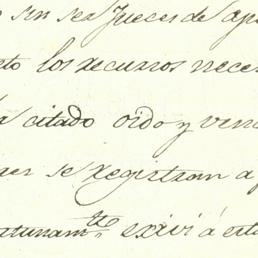 sin ser Jueces de ape
los recursos nece
citado oido y venc
se registran a f
atunam.te exivi á esta